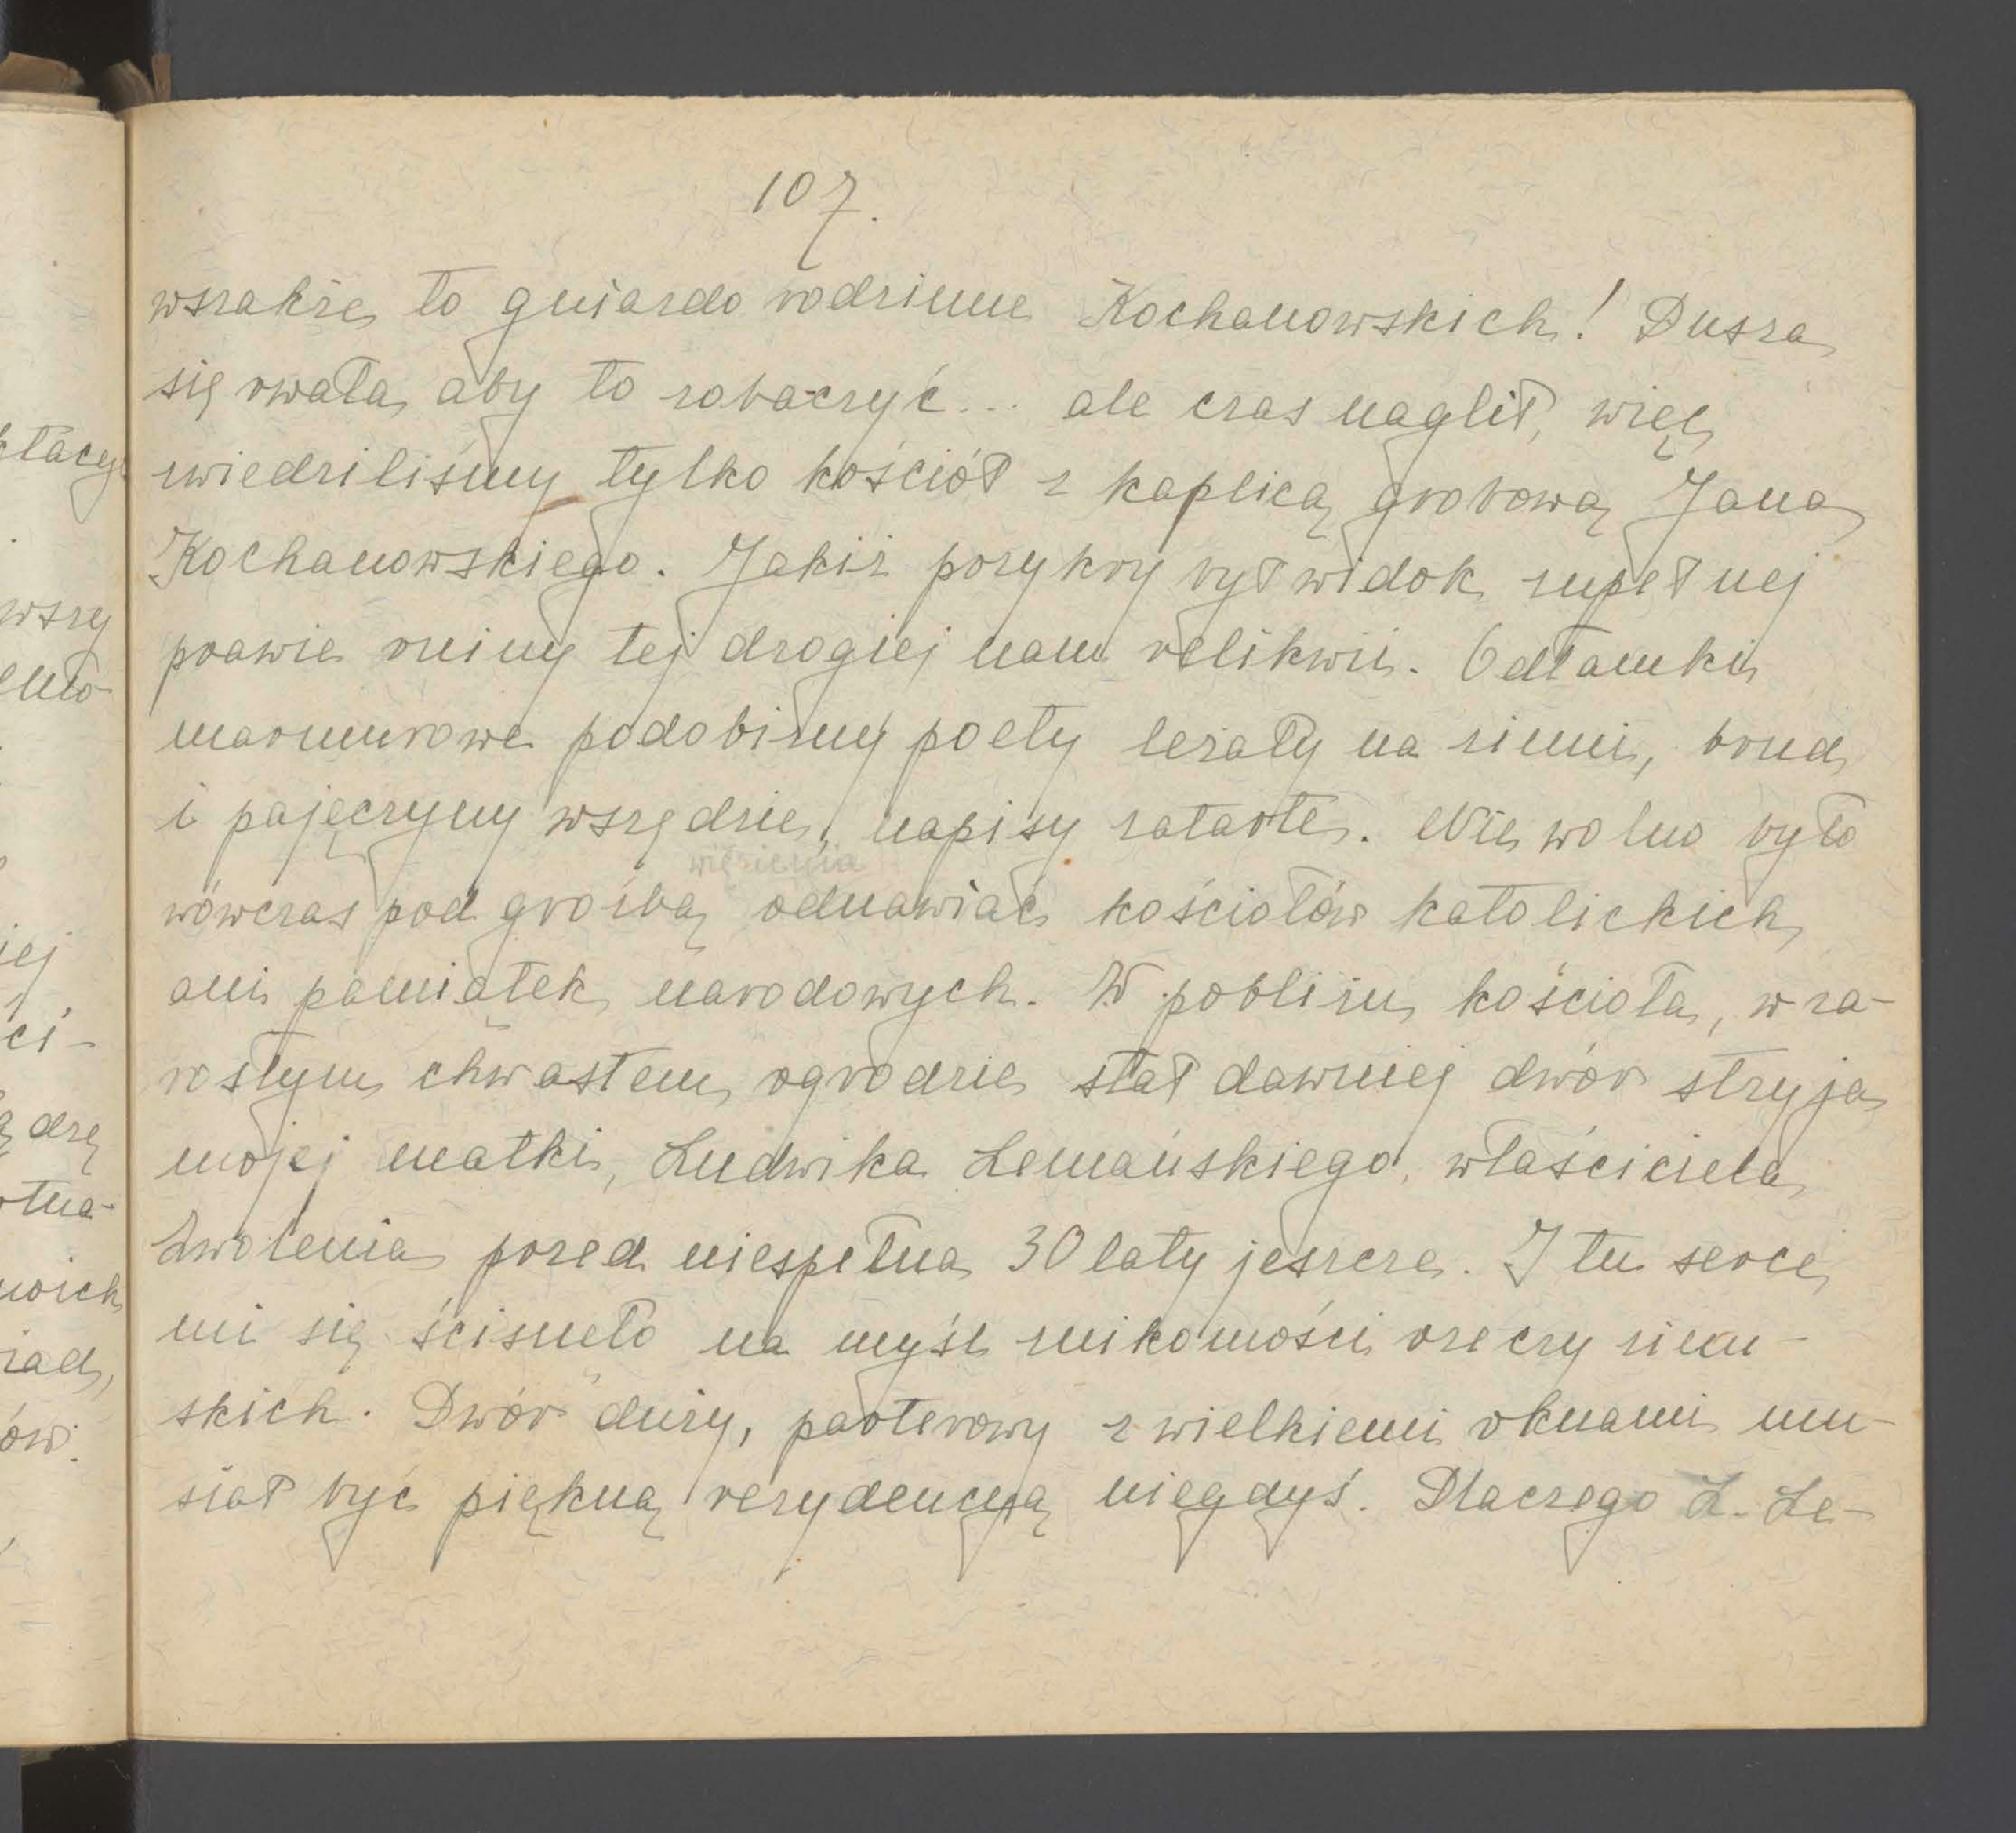 107.
wszakże to gniazdo rodzinne Kochanowskich! Dusza
się rwała, aby to zobaczyć... ale czas naglił, więc
zwiedziliśmy tylko kościół z kaplicą grobową Jana
Kochanowskiego. Jakiż przykry był widok zupełnej
prawie ruiny tej drogiej nam relikwii. Odłamki
marmurowe podobizny poety leżały na ziemi, brud
i pajęczyny wszędzie, napisy zatarte. Nie wolno było
więzienia
wówczas pod groźbą odnawiać kościołów katolickich
ani pamiątek narodowych. W pobliżu kościoła, w za-
rosłym chwastem ogrodzie stał dawniej dwór stryja
mojej matki, Ludwika Lemańskiego, właściciela
Zwolenia przed niespełna 30 laty jeszcze. I tu serce
mi się ścisnęło na myśl znikomości rzeczy ziem-
skich. Dwór duży, parterowy z wielkiemi oknami mu-
siał być piękną rezydencyą niegdyś. Dlaczego L. Le-
ktacy
wszy
ej
ci-
drę
tna-
oich
iad,
ów.